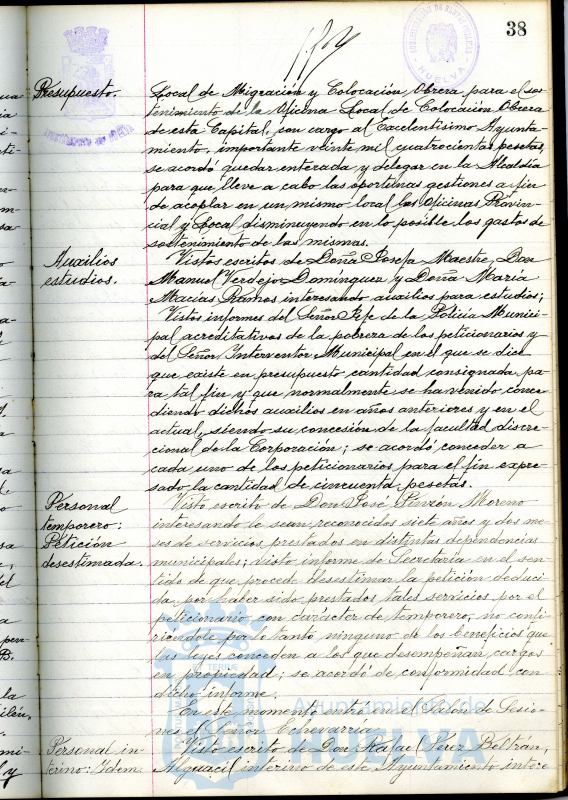 38
Presupuesto.
Local de Migración y Colocación Obrera para el sos-
tenimiento de la Oficina Local de Colocación Obrera
de esta Capital, con cargo al Excelentísimo Ayunta-
miento, importante veinte mil cuatrocientas pesetas,
se acordó quedar enterada y delegar en la Alcaldía
para que lleve a cabo las oportunas gestiones a fin
de acoplar en un mismo local las Oficinas Provin-
cial y Local disminuyendo en lo posible los gastos de
sostenimiento de las mismas.
Auxilios
estudios.
Vistos escritos de Doña Josefa Maestre, Don
Manuel Verdejo Domínguez y Doña María
Macías Ramos interesando auxilios para estudios;
Vistos informes del Señor Jefe de la Policía Munici-
pal acreditativos de la pobreza de los peticionarios y
del Señor Interventor Municipal en el que se dice
que existe en presupuesto cantidad consignada pa-
ra tal fin y que normalmente se ha venido conce-
diendo dichos auxilios en años anteriores y en el
actual, siendo su concesión de la facultad discre-
cional de la Corporación; se acordó conceder a
cada uno de los peticionarios para el fin expre-
sado la cantidad de cincuenta pesetas.
Personal
temporero:
Petición
desestimada.
Visto escrito de Don José Pinzón Moreno
interesando le sean reconocidos siete años y dos me-
ses de servicios prestados en distintas dependencias
municipales; visto informe de Secretaría en el sen-
tido de que procede desestimar la petición deduci-
da por haber sido prestados tales servicios por el
peticionario con carácter de temporero, no confi-
riéndole por lo tanto ninguno de los beneficios que
las leyes conceden a los que desempeñan cargos
en propiedad; se acordó de conformidad con
dicho informe.
En este momento entró en el Salón de Sesio-
nes el Señor Echevarría.
Personal in-
terino: Idem.
Visto escrito de Don Rafael Pérez Beltrán,
Alguacil interino de este Ayuntamiento intere-
Ayuntamiento de
HUELVA